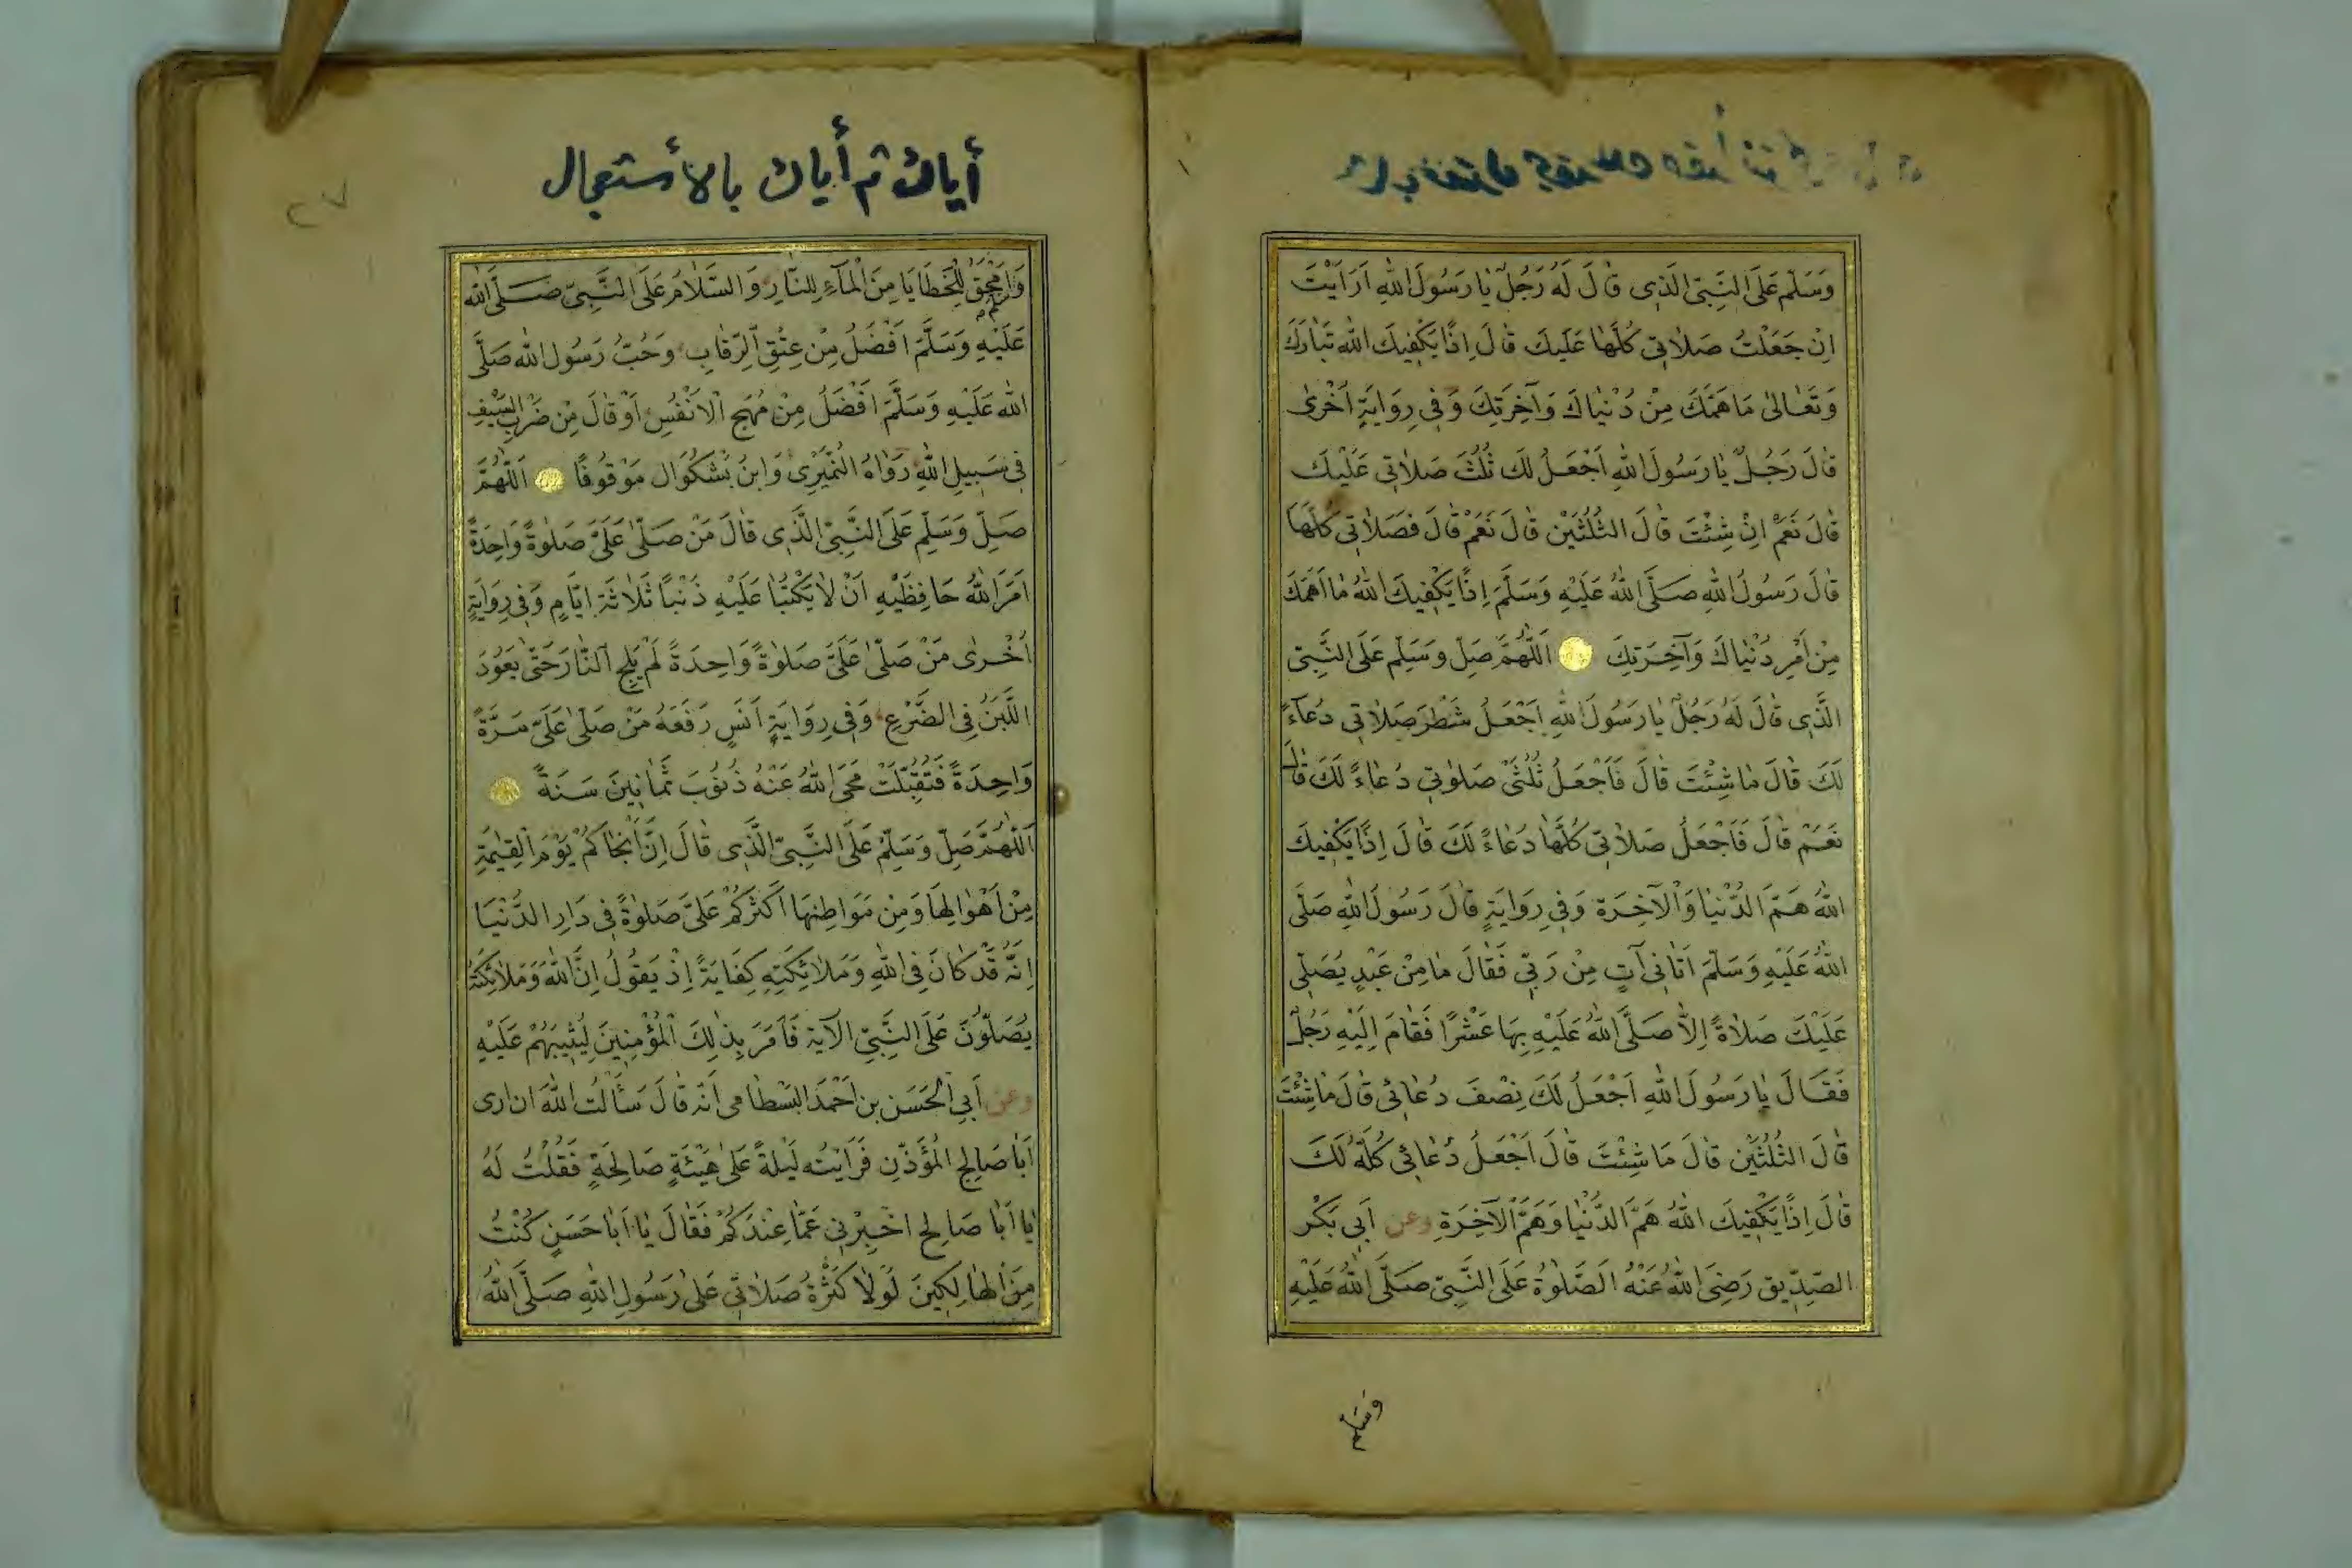 وَسَلِّمْ عَلَى النَّبِيِّ الَّذِى قَالَ لَهُ رَجُلٌ يَا رَسُولَ اللهِ اَرَاَيْتَ
اِنْ جَعَلْتُ صَلَاتِى كُلَّهَا عَلَيْكَ قَالَ اِذًا يَكْفِيكَ اللهُ تَبَارَكَ
وَتَعَالٰى مَا هَمَّكَ مِنْ دُنْيَاكَ وَآخِرَتِكَ وَفِى رِوَايَةٍ اُخْرٰى
قَالَ رَجُلٌ يَا رَسُولَ اللهِ اَجْعَلُ لَكَ ثُلُثَ صَلَاتِى عَلَيْكَ
قَالَ نَعَمْ اِنْ شِئْتَ قَالَ الثُّلُثَيْنِ قَالَ نَعَمْ قَالَ فَصَلَاتِى كُلَّهَا
قَالَ رَسُولُ اللهِ صَلَّى اللهُ عَلَيْهِ وَسَلَّمَ اِذًا يَكْفِيكَ اللهُ مَا اَهَمَّكَ
مِنْ اَمْرِ دُنْيَاكَ وَآخِرَتِكَ اَللّٰهُمَّ صَلِّ وَسَلِّمْ عَلَى النَّبِيِّ
الَّذِى قَالَ لَهُ رَجُلٌ يَا رَسُولَ اللهِ اَجْعَلُ شَطْرَ صَلَاتِى دُعَآءً
لَكَ قَالَ مَا شِئْتَ قَالَ فَاَجْعَلُ ثُلُثَىْ صَلَوٰتِى دُعَاءً لَكَ قَالَ
نَعَمْ قَالَ فَاَجْعَلُ صَلَاتِى كُلَّهَا دُعَاءً لَكَ قَالَ اِذًا يَكْفِيكَ
اللهُ هَمَّ الدُّنْيَا وَالْآخِرَة وَفِى رِوَايَةٍ قَالَ رَسُولُ اللهِ صَلَّى
اللهُ عَلَيْهِ وَسَلَّمَ اَتَانِى آتٍ مِنْ رَبِّى فَقَالَ مَا مِنْ عَبْدٍ يُصَلِّى
عَلَيْكَ صَلَاةً اِلَّا صَلَّى اللهُ عَلَيْهِ بِهَا عَشْرًا فَقَامَ اِلَيْهِ رَجُلٌ
فَقَالَ يَا رَسُولَ اللهِ اَجْعَلُ لَكَ نِصْفَ دُعَائِى قَالَ مَا شِئْتَ
قَالَ الثُّلُثَيْنِ قَالَ مَا شِئْتَ قَالَ اَجْعَلُ دُعَائِى كُلَّهُ لَكَ
قَالَ اِذًا يَكْفِيكَ اللهُ هَمَّ الدُّنْيَا وَهَمَّ الْآخِرَةِ وعن اَبِى بَكْر
الصِّدِّيق رَضِىَ اللهُ عَنْهُ اَلصَّلٰوةُ عَلَى النَّبِيِّ صَلَّى اللهُ عَلَيْهِ
وَسَلَّم
أياك ثم أياك بالأستعجال
٢٧
وَاَمْحَقُ لِلْخَطَايَا مِنَ الْمَآءِ لِلنَّارِ وَالسَّلَامُ عَلَى النَّبِيِّ صَلَّى الله
عَلَيْهِ وَسَلَّمَ اَفْضَلُ مِنْ عِتْقِ الرِّقَابِ وَحُبُّ رَسُولِ الله صَلَّى
الله عَلَيْهِ وَسَلَّمَ اَفْضَلُ مِنْ مُهَجِ الْاَنْفُسِ اَوْ قَالَ مِنْ ضَرْبِ السَّيْفِ
فِى سَبِيلِ اللهِ رَوَاهُ النُّمَيْرِى وَابْنُ بُشْكَوَال مَوْقُوفًا اَللّٰهُمَّ
صَلِّ وَسَلِّمْ عَلَى النَّبِيِّ الَّذِى قَالَ مَنْ صَلّٰى عَلَىَّ صَلٰوةً وَاحِدَةً
اَمَرَ اللهُ حَافِظَيْهِ اَنْ لَا يَكْتُبَا عَلَيْهِ ذَنْبًا ثَلَاثَةَ اَيَّامٍ وَفِى رِوَايَةٍ
اُخْرٰى مَنْ صَلّٰى عَلَىَّ صَلٰوةً وَاحِدَةً لَمْ يَلِجِ النَّارَ حَتّٰى يَعُودَ
اللَّبَنُ فِى الضَّرْعِ وَفِى رِوَايَةِ اَنَسٍ رَفَعَهُ مَنْ صَلّٰى عَلَىَّ مَرَّةً
وَاحِدَةً فَتُقُبِّلَتْ مَحَى اللهُ عَنْهُ ذُنُوبَ ثَمَانِينَ سَنَةً
اَللّٰهُمَّ صَلِّ وَسَلِّمْ عَلَى النَّبِيِّ الَّذِى قَالَ اِنَّ اَنْجَاكُمْ يَوْمَ الْقِيٰمَةِ
مِنْ اَهْوَالِهَا وَمِنْ مَوَاطِنِهَا اَكْثَرُكُمْ عَلَىَّ صَلٰوةً فِى دَارِ الدُّنْيَا
اِنَّهُ قَدْ كَانَ فِى اللهِ وَمَلَائِكَتِهِ كِفَايَةً اِذْ يَقُولُ اِنَّ اللهَ وَمَلَائِكَتَهُ
يُصَلُّونَ عَلَى النَّبِيِّ الْآيَة فَاَمَرَ بِذٰلِكَ الْمُؤْمِنِينَ لِيُثِيبَهُمْ عَلَيْهِ
وعن اَبِى الْحَسَنِ بن اَحْمَدَ الْبَسْطَامى اَنَّه قَالَ سَئَالْتُ اللهَ ان ارى
اَبَا صَالِحِ الْمُؤَذِّنِ فَرَاَيْتُه لَيْلَةً عَلٰى هَيْئَةٍ صَالِحَةٍ فَقُلْتُ لَهُ
يَا اَبَا صَالِحِ اَخْبِرْنِى عَمَّا عِنْدَكُمْ فَقَالَ يَا اَبَا حَسَنٍ كُنْتُ
مِنَ الْهَالِكِينَ لَوْلَا كَثْرَةُ صَلَاتِى عَلٰى رَسُولِ اللهِ صَلَّى اللهُ